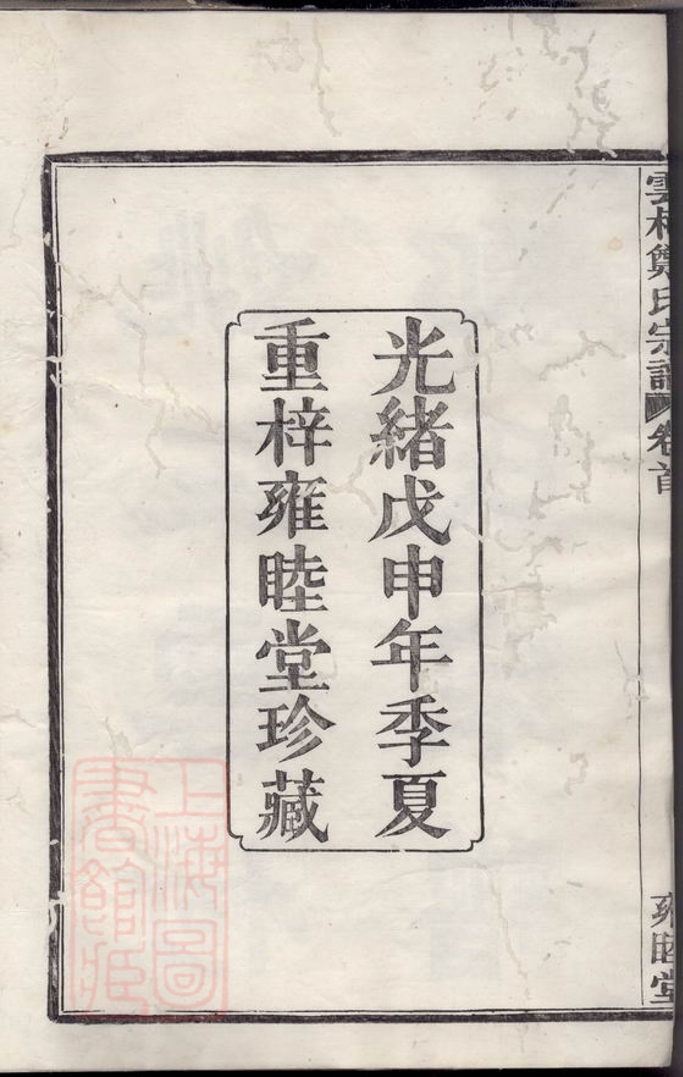 光緒戊申年季夏
重梓雍睦堂珍藏
鄭氏宗譜 卷首
雍睦堂
上海圖書館藏